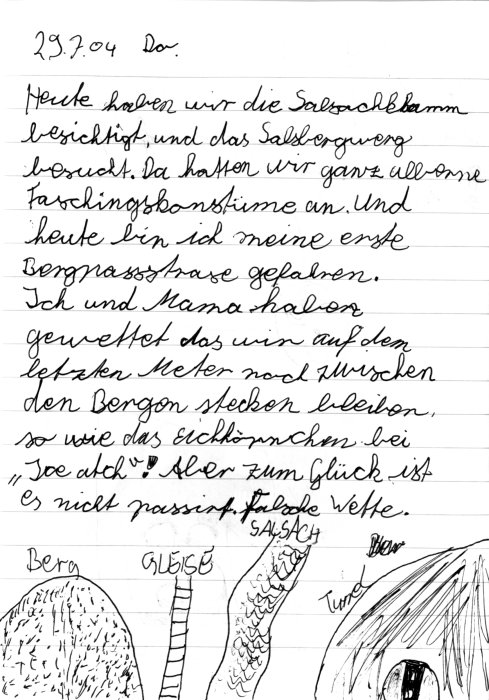 29.7.04 Do.
Heute haben wir die Salsachklamm
besichtigt, und das Salsbergwerg
besucht. Da hatten wir ganz alberne
Faschingskonstüme an. Und
heute bin ich meine erste
Bergpassstrase gefahren.
Ich und Mama haben
gewettet das wir auf dem
letzten Meter noch zwischen
den Bergen stecken bleiben,
so wie das Eichhörnchen bei
„Ice atch“! Aber zum Glück ist
es nicht passirt. Falsche Wette.
SALSACH
Berg GLEISE
Tunnel